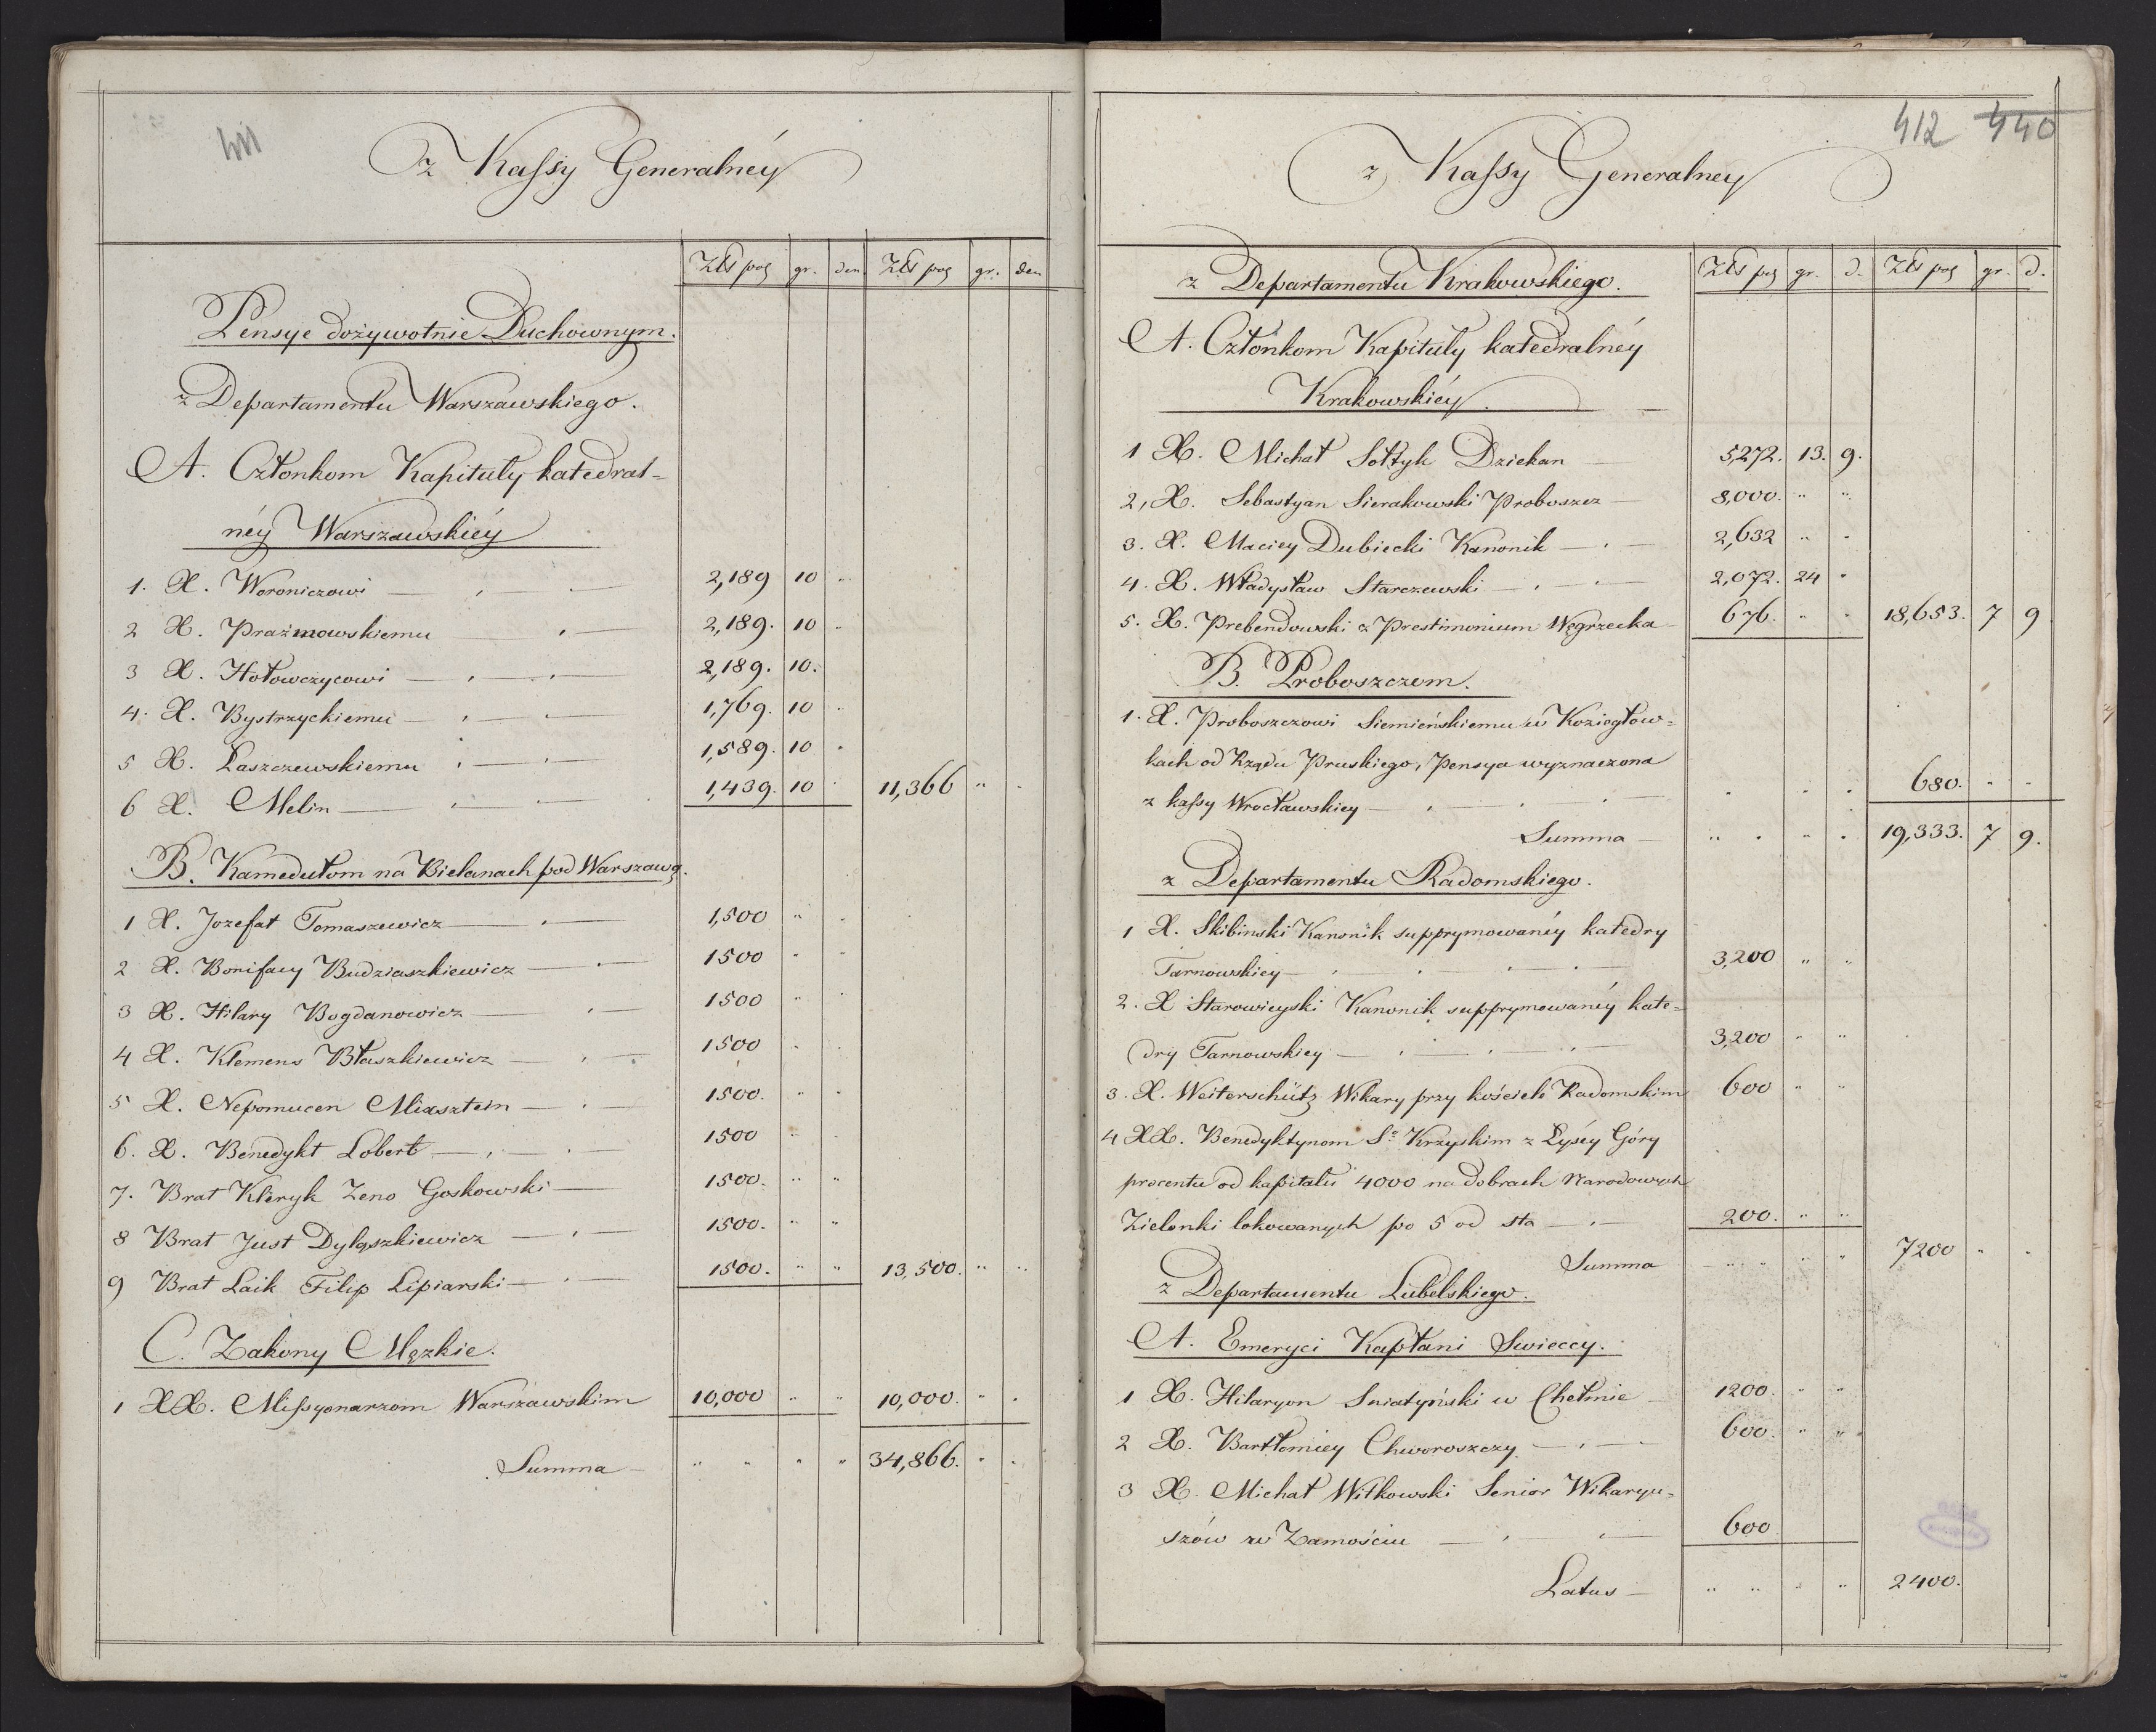 411
z Kassy Generalnéy
Złt pol gr. den Złt pol gr. den
Pensye dożywotnie Duchownym.
z Departamentu Warszawskiego.
A. Członkom Kapituły katedral-
néy Warszawskiéy
1. X. Woroniczowi 2,189 10 "
2 X. Prażmowskiemu 2,189. 10 "
3 X. Hołowczycowi 2,189. 10.
4. X. Bystrzyckiemu 1,769. 10 "
5 X. Łaszczewskiemu 1,589. 10 "
6 X. Melin 1,439. 10 " 11,366 " "
B. Kamedułom na Bielanach pod Warszawą.
1 X. Jozefat Tomaszewicz 1,500 " "
2 X. Bonifacy Budziaszkiewicz 1500 " "
3 X. Hilary Bogdanowicz 1500 " "
4 X. Klemens Błaszkiewicz 1500 " "
5 X. Nepomucen Miasztein 1500. " "
6. X. Benedykt Lobert 1500 " "
7. Brat Kleryk Zeno Goskowski 1500. " "
8 Brat Just Dyląszkiewicz 1500. " "
9 Brat Laik Filip Lipiarski 1500. " " 13,500. " "
C. Zakony Męzkie.
1 XX. Missyonarzom Warszawskim 10,000 " " 10,000. " "
Summa " " " " 34,866. " "
412 440
z Kassy Generalney
Złt pol gr. d. Złt pol gr. d.
z Departamentu Krakowskiego.
A. Członkom Kapituły katedralnéy
Krakowskiéy.
1 X. Michał Sołtyk Dziekan 5,272. 13. 9.
2, X. Sebastyan Sierakowski Proboszcz 8,000. " "
3. X. Maciey Dubiecki Kanonik 2,632 " "
4. X. Władysław Starczewski 2,072. 24 "
5. X. Prebendowski z Prestimonium Węgrzecka 676. " " 18,653. 7 9
B. Proboszczom.
1. X. Proboszczowi Siemieńskiemu w Koziegłow-
kach od Rządu Pruskiego, Pensya wyznaczona
z kassy Wrocławskiey " " " 680. " "
Summa " " " " 19,333. 7 9.
z Departamentu Radomskiego.
1 X. Skibinski Kanonik supprymowanéy katedry
Tarnowskiey 3,200 " "
2. X Starowieyski Kanonik supprymowanéy kate-
dry Tarnowskiey 3,200 " "
3. X. Weiterschütz Wikary przy kościele Radomskim 600 " "
4 XX. Benedyktynom Sto Krzyskim z Łyséy Góry
procentu od kapitału 4000 na dobrach Narodowych
Zielonki lokowanych po 5 od sta 200. " "
Summa " " " " 7200 " "
z Departamentu Lubelskiego.
A. Emeryci Kapłani Swieccy.
1 X. Hilaryon Sniatyński w Chełmie 1200. " "
2 X. Bartłomiey Chworoszczy 600. " "
3 X. Michał Witkowski Senior Wikaryu-
szów w Zamościu 600
Latus " " " " 2400.